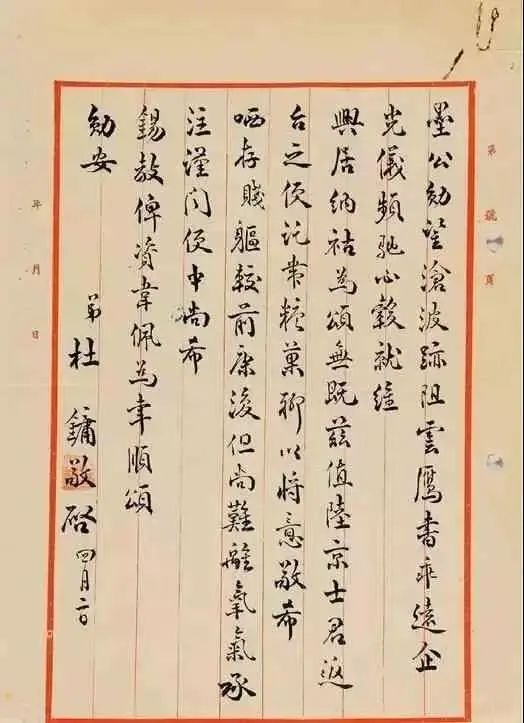 墨公勛鑒滄波跡阻雲鴈書乖遠企
光儀頻馳心轂就維
興居納祜為頌無既茲值陸京士君返
台之便託帶糖菓聊以將意敬希
哂存賤軀較前康復但尚難離氧氣承
注謹聞便中尚希
錫教俾資韋佩為幸順頌
勛安
弟
杜鏞敬啓四月二日
第 號 頁
年 月 日